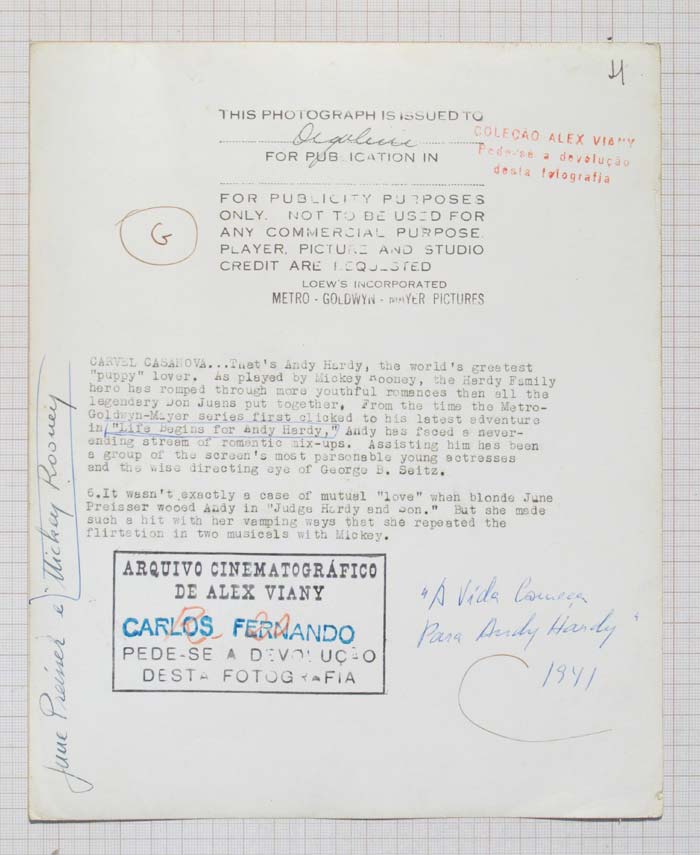 THIS PHOTOGRAPH IS ISSUED TO
FOR PUBLICATION IN
COLEÇÃO ALEX VIANY
Pede-se a devolução
desta fotografia
FOR PUBLICITY PURPOSES
ONLY. NOT TO BE USED FOR
ANY COMMERCIAL PURPOSE.
PLAYER, PICTURE AND STUDIO
CREDIT ARE REQUESTED
LOEW'S INCORPORATED
METRO - GOLDWYN - MAYER PICTURES
G
CARVEL CASANOVA...That's Andy Hardy, the world's greatest
"puppy" lover. As played by Mickey Rooney, the Hardy Family
hero has romped through more youthful romances than all the
legendary Don Juans put together. From the time the Metro-
Goldwyn-Mayer series first clicked to his latest adventure
in "Life Begins for Andy Hardy," Andy has faced a never-
ending stream of romantic mix-ups. Assisting him has been
a group of the screen's most personable young actresses
and the wise directing eye of George B. Seitz.
6.It wasn't exactly a case of mutual "love" when blonde June
Preisser wooed Andy in "Judge Hardy and Son." But she made
such a hit with her vamping ways that she repeated the
flirtation in two musicals with Mickey.
June Preiser e Mickey Rooney
ARQUIVO CINEMATOGRÁFICO
DE ALEX VIANY
CARLOS FERNANDO
PEDE-SE A DEVOLUÇÃO
DESTA FOTOGRAFIA
"A Vida Começa
Para Andy Hardy"
1941